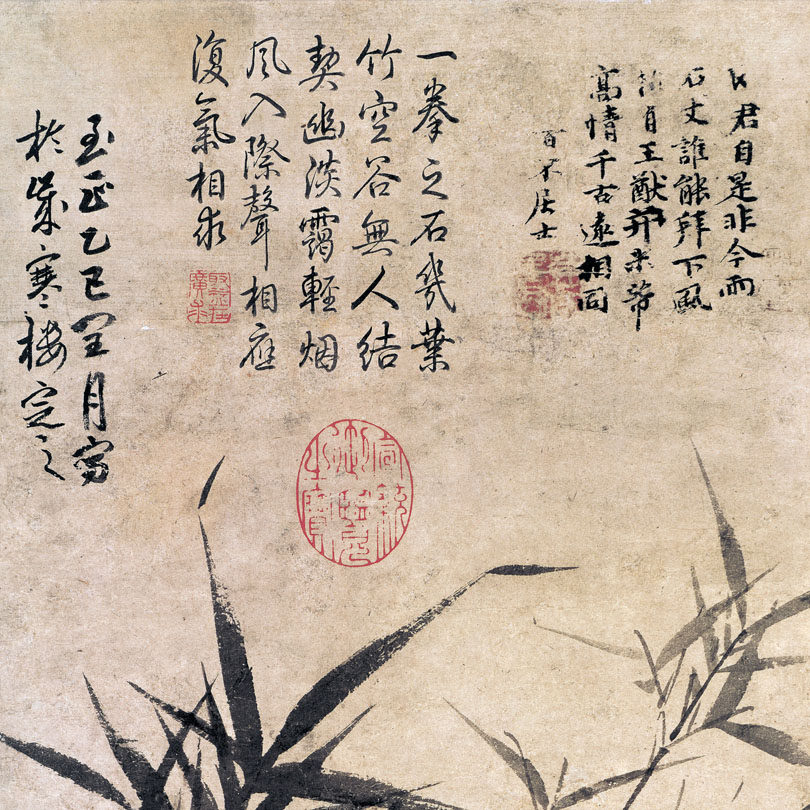 君自是非今而
石丈誰能拜下風
有王猷并米芾
高情千古遠相同
百不居士
一拳之石幾葉
竹空谷無人結
契幽淡靄輕烟
風入際聲相應
復氣相求
至正乙巳月寫
於歲寒樓定之
宣統御覽之寶